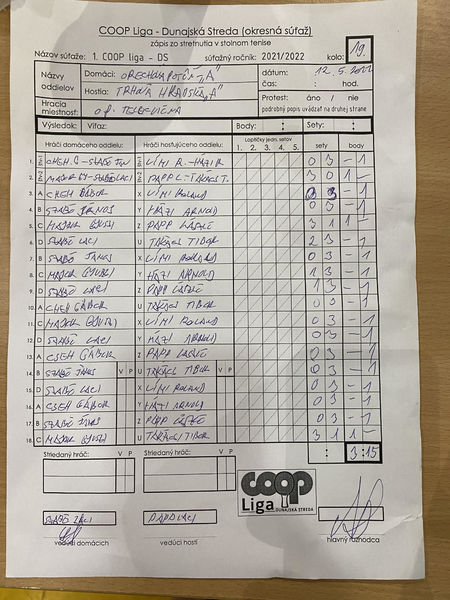 COOP Liga - Dunajská Streda (okresná súťaž)
zápis zo stretnutia v stolnom tenise
Názov súťaže: 1. COOP liga - DS súťažný ročník: 2021/2022 kolo: 19.
Názvy oddielov Domáci: "A" dátum: 12.5.2022
Hostia: TRHOVÁ HRADSKÁ "A" čas: : hod.
Hracia miestnosť: Protest: áno / nie
podrobný popis uvádzať na druhej strane
Výsledok: Víťaz: Body: : Sety: :
Hráči domáceho oddielu: Hráči hosťujúceho oddielu: Loptičky jedn. setov sety body
1. 2. 3. 4. 5.
1. Š Š 0 3 - 1
2. Š Š PAPP L - TAKÁCS T. 3 0 1 -
3. A CSEH GÁBOR X VÍMI ROLAND 0 3 - 1
4. B SZABÓ JÁNOS Y HÁZI ARNOLD 0 3 - 1
5. C MAJOR GYUSI Z PAPP LÁSZLÓ 3 1 1 -
6. D SZABÓ LACI U TAKÁCS TIBOR 2 3 - 1
7. B SZABÓ JÁNOS X VÍMI ROLAND 0 3 - 1
8. C MAJOR GYUSI Y HÁZI ARNOLD 1 3 - 1
9. D SZABÓ LACI Z PAPP LÁSZLÓ 1 3 - 1
10. A CSEH GÁBOR U TAKÁCS TIBOR 0 3 - 1
11. C MAJOR GYUSI X VÍMI ROLAND 0 3 - 1
12. D SZABÓ LACI Y HÁZI ARNOLD 0 3 - 1
13. A CSEH GÁBOR Z PAPP LÁSZLÓ 0 3 - 1
14. B SZABÓ JÁNOS V P U TAKÁCS TIBOR V P 0 3 - 1
15. D SZABÓ LACI X VÍMI ROLAND 0 3 - 1
16. A CSEH GÁBOR Y HÁZI ARNOLD 0 3 - 1
17. B SZABÓ JÁNOS Z PAPP LÁSZLÓ 0 3 - 1
18. C MAJOR GYUSI U TAKÁCS TIBOR 3 1 1 -
Striedaný hráč: V P Striedaný hráč: V P : 3:15
coop
Liga DUNAJSKÁ STREDA
SZABÓ LACI PAPP LACI
vedúci domácich vedúci hostí hlavný rozhodca